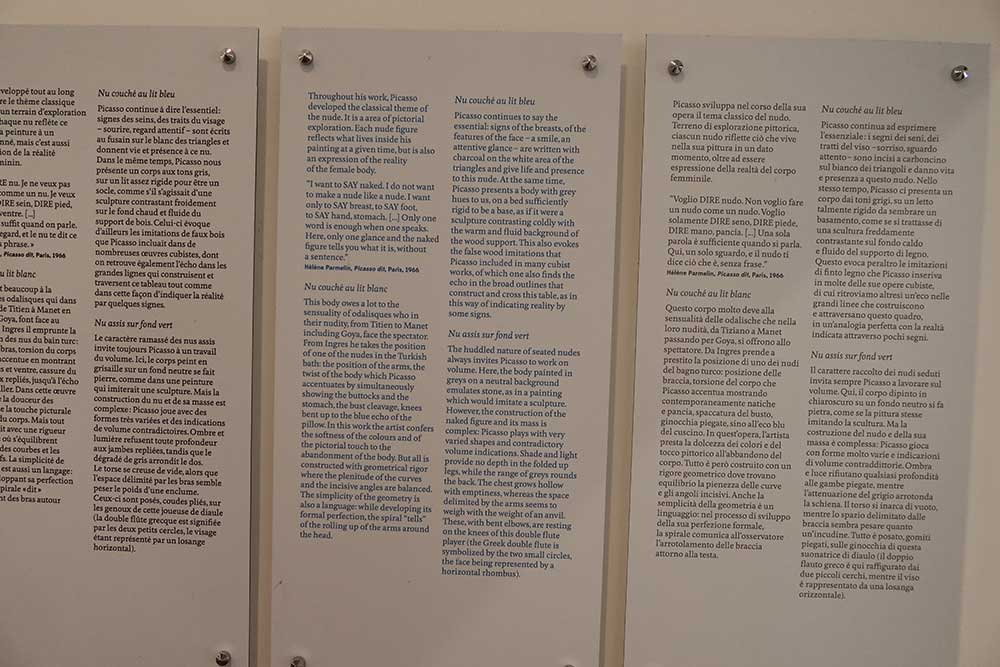 veloppé tout au long
re le thème classique
un terrain d'exploration
haque nu reflète ce
a peinture à un
nné, mais c'est aussi
ion de la réalité
minin.
RE nu. Je ne veux pas
comme un nu. Je veux
DIRE sein, DIRE pied,
ventre. [...]
suffit quand on parle.
regard, et le nu te dit ce
s phrase. »
, Picasso dit, Paris, 1966
u lit blanc
t beaucoup à la
s odalisques qui dans
de Titien à Manet en
Goya, font face au
Ingres il emprunte la
n des nus du bain turc:
bras, torsion du corps
accentue en montrant
s et ventre, cassure du
x repliés, jusqu'à l'écho
ller. Dans cette œuvre
e la douceur des
e la touche picturale
du corps. Mais tout
it avec une rigueur
où s'équilibrent
des courbes et les
fs. La simplicité de
est aussi un langage:
loppant sa perfection
pirale « dit »
nt des bras autour
Nu couché au lit bleu
Picasso continue à dire l'essentiel:
signes des seins, des traits du visage
– sourire, regard attentif – sont écrits
au fusain sur le blanc des triangles et
donnent vie et présence à ce nu.
Dans le même temps, Picasso nous
présente un corps aux tons gris,
sur un lit assez rigide pour être un
socle, comme s'il s'agissait d'une
sculpture contrastant froidement
sur le fond chaud et fluide du
support de bois. Celui-ci évoque
d'ailleurs les imitations de faux bois
que Picasso incluait dans de
nombreuses œuvres cubistes, dont
on retrouve également l'écho dans les
grandes lignes qui construisent et
traversent ce tableau tout comme
dans cette façon d'indiquer la réalité
par quelques signes.
Nu assis sur fond vert
Le caractère ramassé des nus assis
invite toujours Picasso à un travail
du volume. Ici, le corps peint en
grisaille sur un fond neutre se fait
pierre, comme dans une peinture
qui imiterait une sculpture. Mais la
construction du nu et de sa masse est
complexe: Picasso joue avec des
formes très variées et des indications
de volume contradictoires. Ombre et
lumière refusent toute profondeur
aux jambes repliées, tandis que le
dégradé de gris arrondit le dos.
Le torse se creuse de vide, alors que
l'espace délimité par les bras semble
peser le poids d'une enclume.
Ceux-ci sont posés, coudes pliés, sur
les genoux de cette joueuse de diaule
(la double flûte grecque est signifiée
par les deux petits cercles, le visage
étant représenté par un losange
horizontal).
Throughout his work, Picasso
developed the classical theme of
the nude. It is a area of pictorial
exploration. Each nude figure
reflects what lives inside his
painting at a given time, but is also
an expression of the reality
of the female body.
"I want to SAY naked. I do not want
to make a nude like a nude. I want
only to SAY breast, to SAY foot,
to SAY hand, stomach. [...] Only one
word is enough when one speaks.
Here, only one glance and the naked
figure tells you what it is, without
a sentence."
Hélène Parmelin, Picasso dit, Paris, 1966
Nu couché au lit blanc
This body owes a lot to the
sensuality of odalisques who in
their nudity, from Titien to Manet
including Goya, face the spectator.
From Ingres he takes the position
of one of the nudes in the Turkish
bath: the position of the arms, the
twist of the body which Picasso
accentuates by simultaneously
showing the buttocks and the
stomach, the bust cleavage, knees
bent up to the blue echo of the
pillow. In this work the artist confers
the softness of the colours and of
the pictorial touch to the
abandonment of the body. But all is
constructed with geometrical rigor
where the plenitude of the curves
and the incisive angles are balanced.
The simplicity of the geometry is
also a language: while developing its
formal perfection, the spiral "tells"
of the rolling up of the arms around
the head.
Nu couché au lit bleu
Picasso continues to say the
essential: signs of the breasts, of the
features of the face – a smile, an
attentive glance – are written with
charcoal on the white area of the
triangles and give life and presence
to this nude. At the same time,
Picasso presents a body with grey
hues to us, on a bed sufficiently
rigid to be a base, as if it were a
sculpture contrasting coldly with
the warm and fluid background of
the wood support. This also evokes
the false wood imitations that
Picasso included in many cubist
works, of which one also finds the
echo in the broad outlines that
construct and cross this table, as in
this way of indicating reality by
some signs.
Nu assis sur fond vert
The huddled nature of seated nudes
always invites Picasso to work on
volume. Here, the body painted in
greys on a neutral background
emulates stone, as in a painting
which would imitate a sculpture.
However, the construction of the
naked figure and its mass is
complex: Picasso plays with very
varied shapes and contradictory
volume indications. Shade and light
provide no depth in the folded up
legs, while the range of greys rounds
the back. The chest grows hollow
with emptiness, whereas the space
delimited by the arms seems to
weigh with the weight of an anvil.
These, with bent elbows, are resting
on the knees of this double flute
player (the Greek double flute is
symbolized by the two small circles,
the face being represented by a
horizontal rhombus).
Picasso sviluppa nel corso della sua
opera il tema classico del nudo.
Terreno di esplorazione pittorica,
ciascun nudo riflette ciò che vive
nella sua pittura in un dato
momento, oltre ad essere
espressione della realtà del corpo
femminile.
"Voglio DIRE nudo. Non voglio fare
un nudo come un nudo. Voglio
solamente DIRE seno, DIRE piede,
DIRE mano, pancia. [...] Una sola
parola è sufficiente quando si parla.
Qui, un solo sguardo, e il nudo ti
dice ciò che è, senza frase."
Hélène Parmelin, Picasso dit, Paris, 1966
Nu couché au lit blanc
Questo corpo molto deve alla
sensualità delle odalische che nella
loro nudità, da Tiziano a Manet
passando per Goya, si offrono allo
spettatore. Da Ingres prende a
prestito la posizione di uno dei nudi
del bagno turco: posizione delle
braccia, torsione del corpo che
Picasso accentua mostrando
contemporaneamente natiche
e pancia, spaccatura del busto,
ginocchia piegate, sino all'eco blu
del cuscino. In quest'opera, l'artista
presta la dolcezza dei colori e del
tocco pittorico all'abbandono del
corpo. Tutto è però costruito con un
rigore geometrico dove trovano
equilibrio la pienezza delle curve
e gli angoli incisivi. Anche la
semplicità della geometria è un
linguaggio: nel processo di sviluppo
della sua perfezione formale,
la spirale comunica all'osservatore
l'arrotolamento delle braccia
attorno alla testa.
Nu couché au lit bleu
Picasso continua ad esprimere
l'essenziale: i segni dei seni, dei
tratti del viso –sorriso, sguardo
attento– sono incisi a carboncino
sul bianco dei triangoli e danno vita
e presenza a questo nudo. Nello
stesso tempo, Picasso ci presenta un
corpo dai toni grigi, su un letto
talmente rigido da sembrare un
basamento, come se si trattasse di
una scultura freddamente
contrastante sul fondo caldo
e fluido del supporto di legno.
Questo evoca peraltro le imitazioni
di finto legno che Picasso inseriva
in molte delle sue opere cubiste,
di cui ritroviamo altresì un'eco nelle
grandi linee che costruiscono
e attraversano questo quadro,
in un'analogia perfetta con la realtà
indicata attraverso pochi segni.
Nu assis sur fond vert
Il carattere raccolto dei nudi seduti
invita sempre Picasso a lavorare sul
volume. Qui, il corpo dipinto in
chiaroscuro su un fondo neutro si fa
pietra, come se la pittura stesse
imitando la scultura. Ma la
costruzione del nudo e della sua
massa è complessa: Picasso gioca
con forme molto varie e indicazioni
di volume contraddittorie. Ombra
e luce rifiutano qualsiasi profondità
alle gambe piegate, mentre
l'attenuazione del grigio arrotonda
la schiena. Il torso si inarca di vuoto,
mentre lo spazio delimitato dalle
braccia sembra pesare quanto
un'incudine. Tutto è posato, gomiti
piegati, sulle ginocchia di questa
suonatrice di diaulo (il doppio
flauto greco è qui raffigurato dai
due piccoli cerchi, mentre il viso
è rappresentato da una losanga
orizzontale).